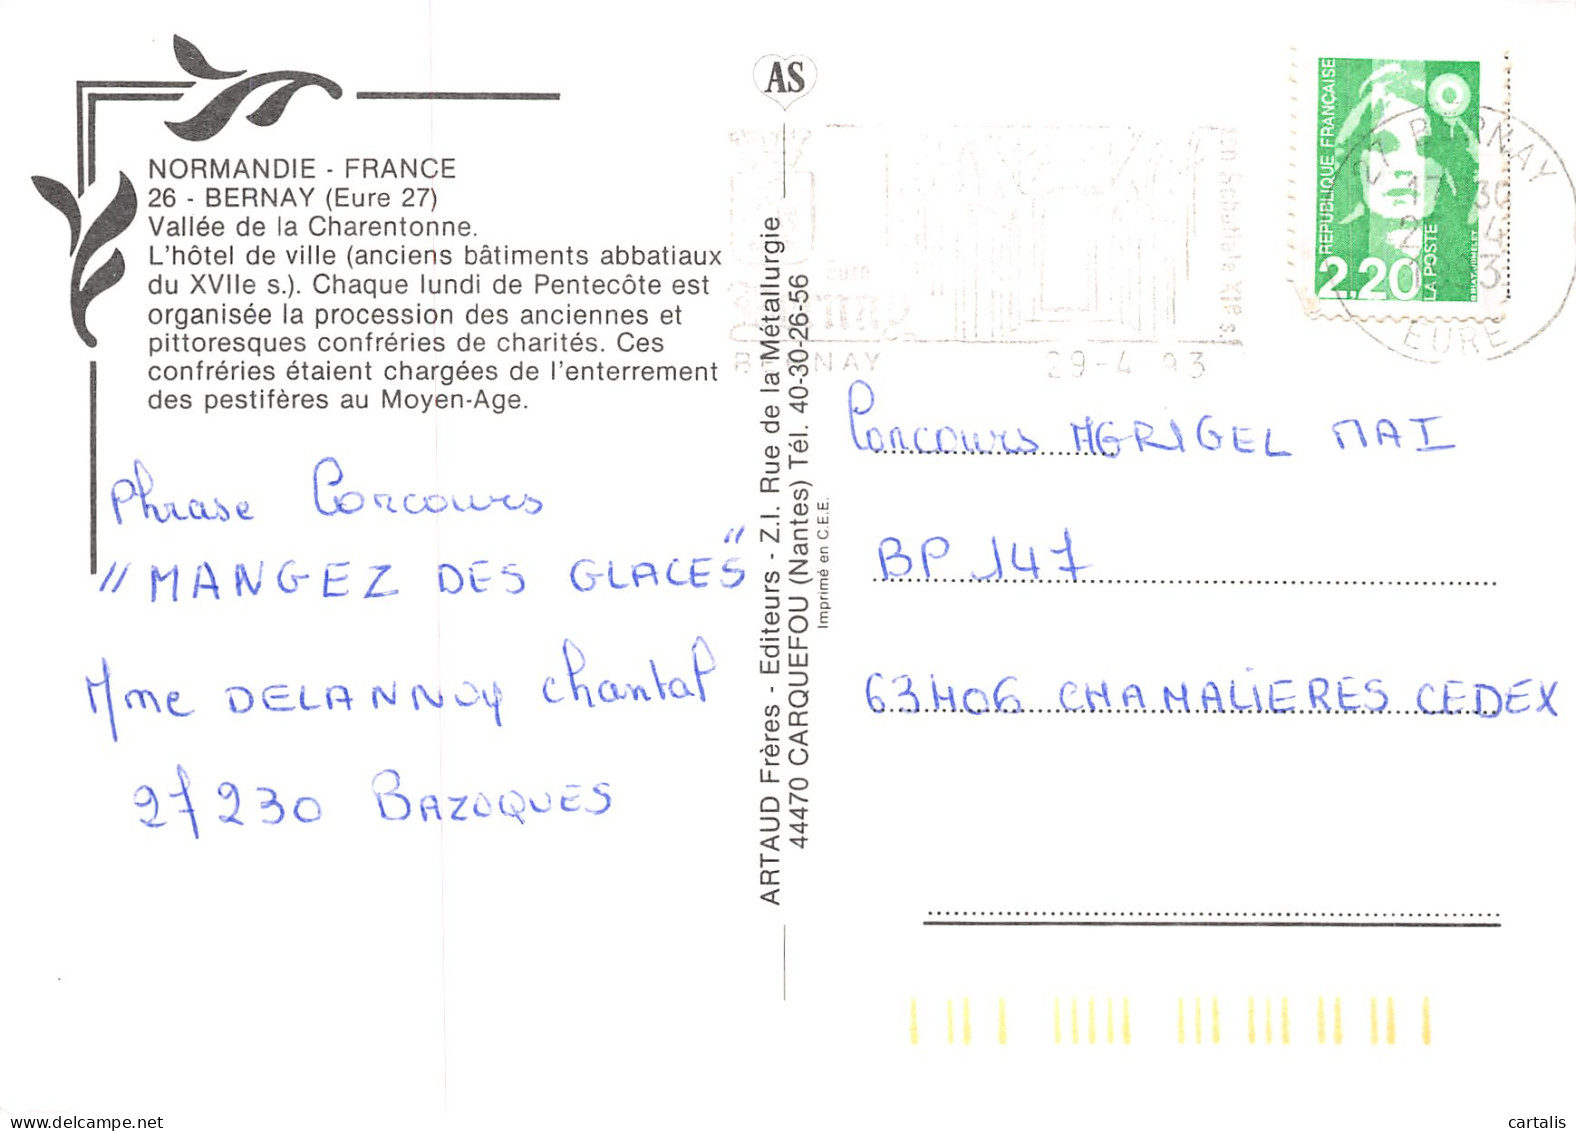 NORMANDIE - FRANCE
26 - BERNAY (Eure 27)
Vallée de la Charentonne.
L'hôtel de ville (anciens bâtiments abbatiaux
du XVIIe s.). Chaque lundi de Pentecôte est
organisée la procession des anciennes et
pittoresques confréries de charités. Ces
confréries étaient chargées de l'enterrement
des pestifères au Moyen-Age.
Phrase Concours
"MANGEZ DES GLACES"
Mme DELANNOY Chantal
27230 BAZOQUES
AS
ARTAUD Frères - Editeurs - Z.I. Rue de la Métallurgie
44470 CARQUEFOU (Nantes) Tél. 40-30-26-56
Imprimé en C.E.E.
Eure
BERNAY 29-4-93
REPUBLIQUE FRANÇAISE
2,20
LA POSTE
27 BERNAY
EURE
Concours AGRIGEL MAI
BP 147
63406 CHAMALIERES CEDEX
cartalis